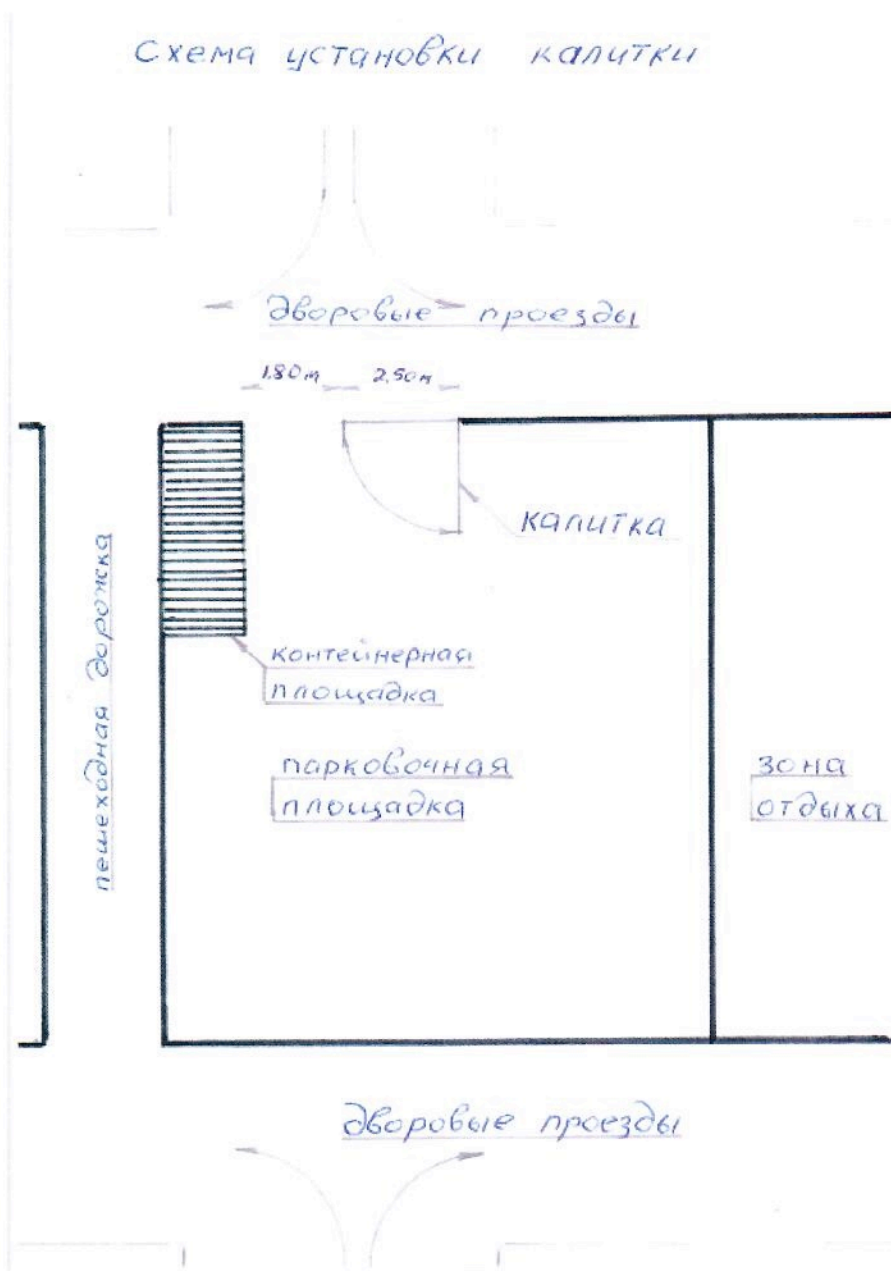 Схема установки калитки
дворовые проезды
1.80м 2.50м
калитка
пешеходная дорожка
контейнерная
площадка
парковочная
площадка
зона
отдыха
дворовые проезды